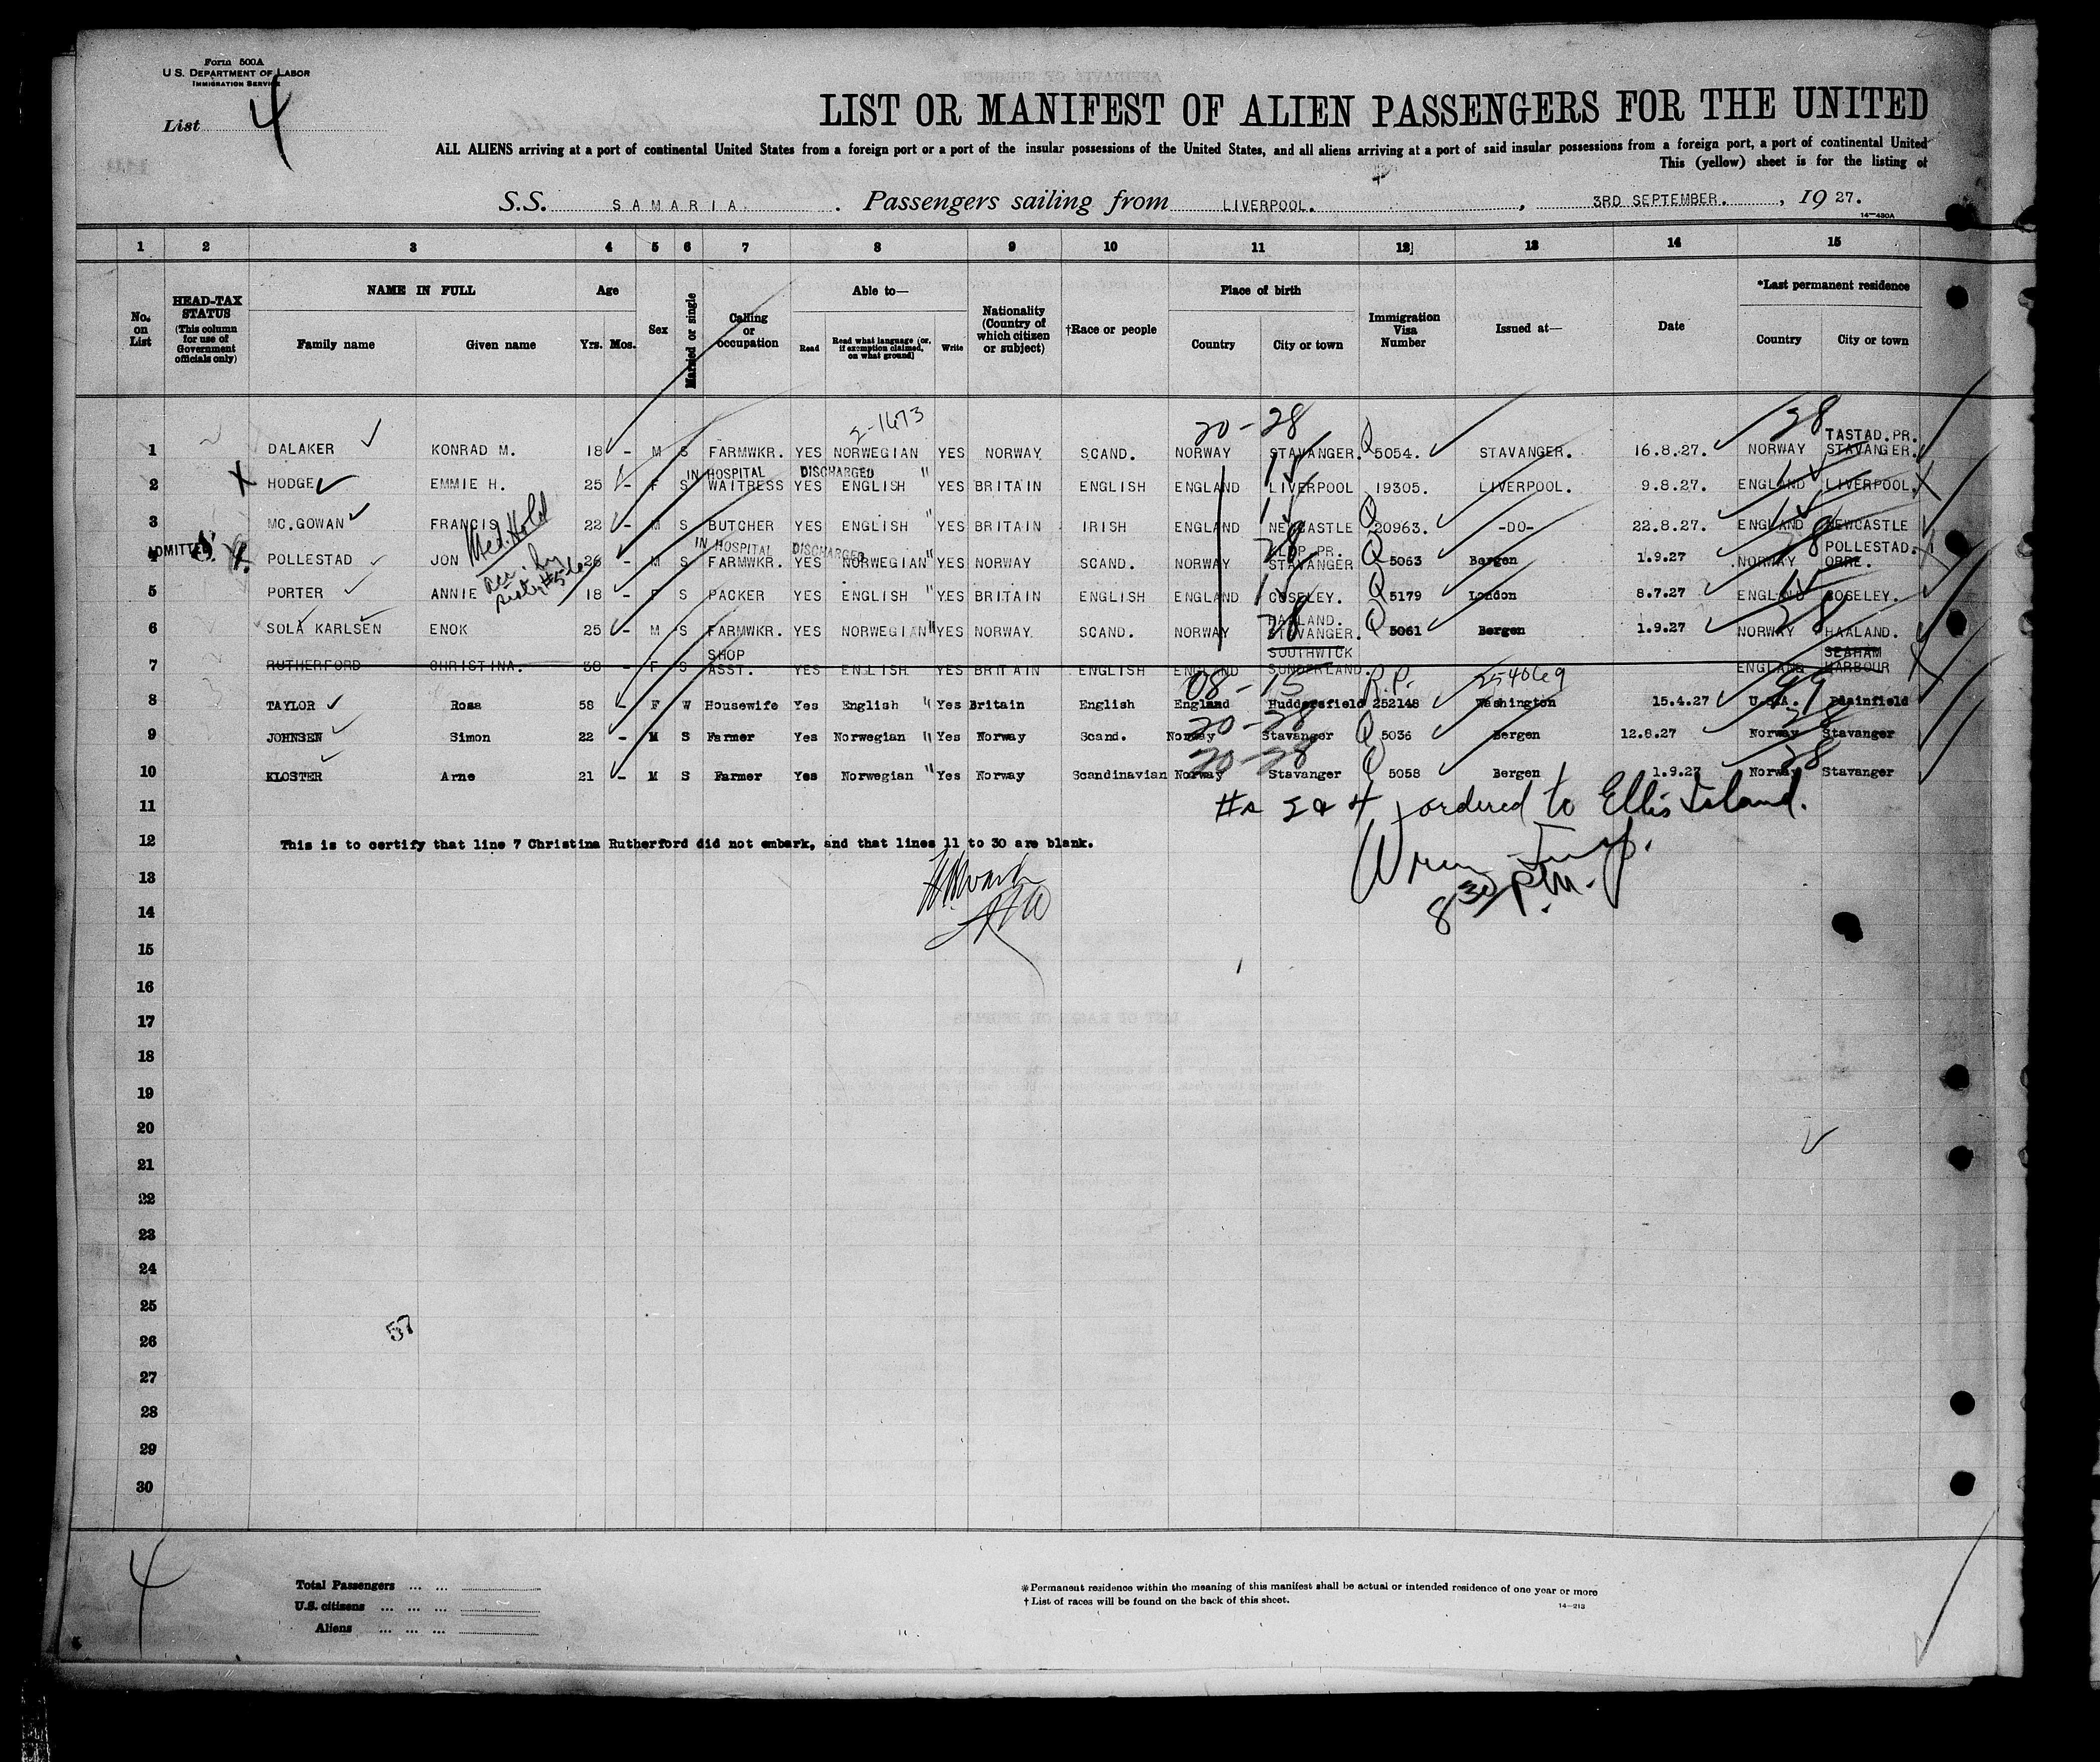 Form 500A
U. S. DEPARTMENT OF LABOR
IMMIGRATION SERVICE
List 4
LIST OR MANIFEST OF ALIEN PASSENGERS FOR THE UNITED
ALL ALIENS arriving at a port of continental United States from a foreign port or a port of the insular possessions of the United States, and all aliens arriving at a port of said insular possessions from a foreign port, a port of continental United
This (yellow) sheet is for the listing of
S.S. SAMARIA. Passengers sailing from LIVERPOOL. , 3RD SEPTEMBER. , 19 27.
14—430A
1 2 3 4 5 6 7 8 9 10 11 12] 13 14 15
No. on List
HEAD-TAX STATUS (This column for use of Government officials only)
NAME IN FULL
Family name Given name
Age
Yrs. Mos.
Sex
Married or single
Calling or occupation
Able to—
Read Read what language (or, if exemption claimed, on what ground) Write
Nationality (Country of which citizen or subject)
†Race or people
Place of birth
Country City or town
Immigration Visa Number
Issued at—
Date
*Last permanent residence
Country City or town
2-1473 20-28 28
TASTAD.PR.
1 DALAKER KONRAD M. 18 - M S FARMWKR. YES NORWEGIAN YES NORWAY SCAND. NORWAY STAVANGER. Q 5054. STAVANGER. 16.8.27. NORWAY STAVANGER.
IN HOSPITAL DISCHARGED
2 X HODGE EMMIE H. 25 - F S WAITRESS YES ENGLISH " YES BRITAIN ENGLISH ENGLAND LIVERPOOL 19305. LIVERPOOL. 9.8.27. ENGLAND LIVERPOOL.
3 MC.GOWAN FRANCIS 22 - M S BUTCHER YES ENGLISH " YES BRITAIN IRISH ENGLAND NEWCASTLE Q 20963. -DO- 22.8.27. ENGLAND NEWCASTLE
Med. Hold
IN HOSPITAL DISCHARGED
ADMITTED
4 POLLESTAD JON 26 - M S FARMWKR. YES NORWEGIAN " YES NORWAY SCAND. NORWAY KLEP.PR. STAVANGER Q 5063 Bergen 1.9.27 NORWAY POLLESTAD. ORRE.
5 PORTER ANNIE 18 - F S PACKER YES ENGLISH " YES BRITAIN ENGLISH ENGLAND COSELEY. Q 5179 London 8.7.27 ENGLAND COSELEY.
6 SOLA KARLSEN ENOK 25 - M S FARMWKR. YES NORWEGIAN " YES NORWAY. SCAND. NORWAY HAALAND. STAVANGER. Q 5061 Bergen 1.9.27 NORWAY HAALAND.
7 RUTHERFORD CHRISTINA. 38 - F S SHOP ASST. YES ENGLISH. YES BRITAIN ENGLISH ENGLAND SOUTHWICK SUNDERLAND. ENGLAND SEAHAM HARBOUR
08-15 R.P. 99
8 TAYLOR Rosa 58 - F W Housewife Yes English " Yes Britain English England Huddersfield 252148 Washington 15.4.27 U.S.A. Plainfield
20-28 28
9 JOHNSEN Simon 22 - M S Farmer Yes Norwegian " Yes Norway Scand. Norway Stavanger Q 5036 Bergen 12.8.27 Norway Stavanger
20-28 28
10 KLOSTER Arne 21 - M S Farmer Yes Norwegian " Yes Norway Scandinavian Norway Stavanger Q 5058 Bergen 1.9.27 Norway Stavanger
11 #s 2 & 4 ordered to Ellis Island.
12 This is to certify that line 7 Christina Rutherford did not embark, and that lines 11 to 30 are blank.
13
14 8 30 P.M.
15
16
17
18
19
20
21
22
23
24
25
57
26
27
28
29
30
4
Total Passengers ... ...
U.S. citizens ... ... ...
Aliens ... ... ...
*Permanent residence within the meaning of this manifest shall be actual or intended residence of one year or more
† List of races will be found on the back of this sheet.
14—213